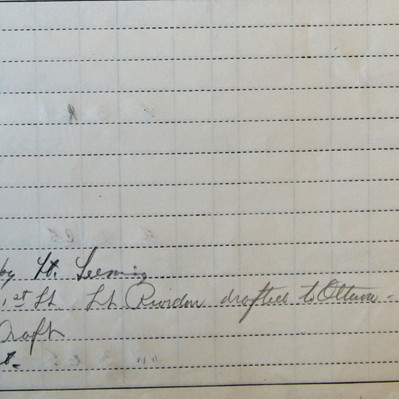 by Lt. Leeming
1st Lt. Lt Riordon drafted to Ottawa -
Draft
t.